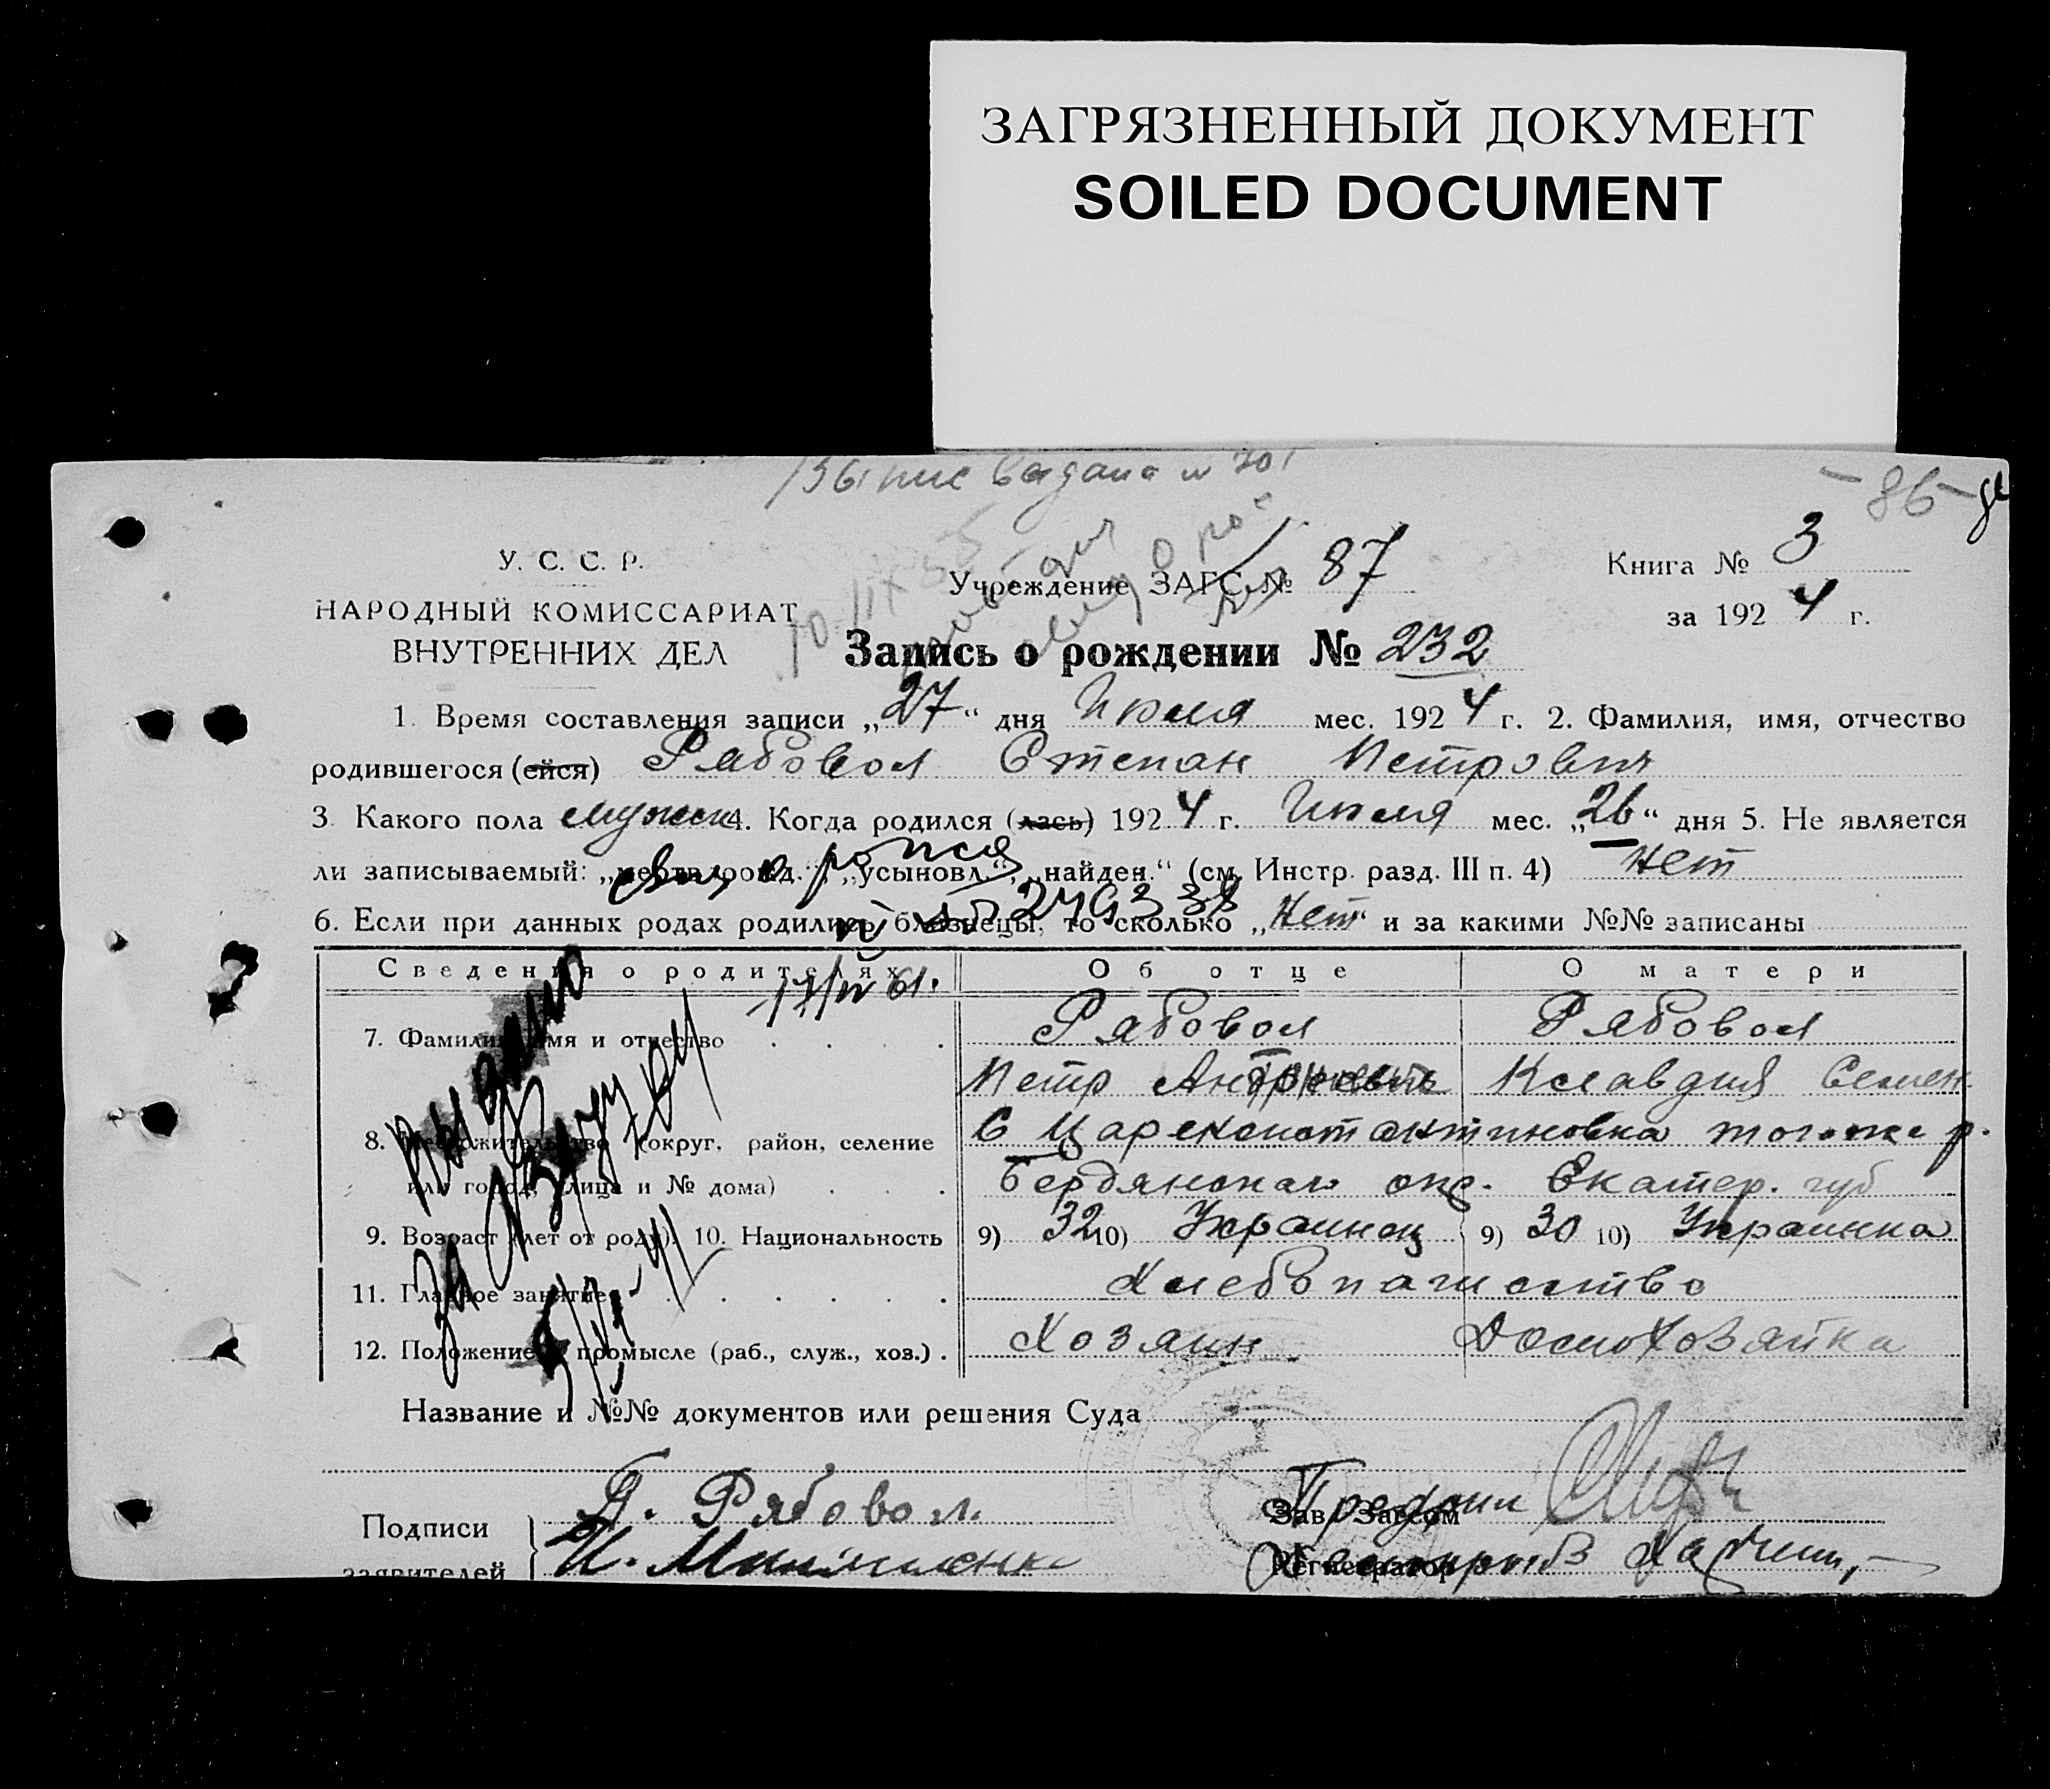 ЗАГРЯЗНЕННЫЙ ДОКУМЕНТ
SOILED DOCUMENT
- 86 -
У. С. С. Р.
НАРОДНЫЙ КОМИССАРИАТ
ВНУТРЕННИХ ДЕЛ
Учреждение ЗАГС № 87
Книга № 3
за 1924 г.
Запись о рождении № 232
1. Время составления записи „27“ дня Июля мес. 1924 г. 2. Фамилия, имя, отчество
родившегося (ейся) Рябовол Степан Петрович
3. Какого пола мужск 4. Когда родился (лась) 1924 г. Июля мес. „26“ дня 5. Не является
ли записываемый: „мертворожд.“, „усыновл.“, „найден.“ (см. Инстр. разд. III п. 4) Нет
6. Если при данных родах родились близнецы, то сколько „Нет“ и за какими №№ записаны
Сведения о родителях Об отце О матери
17/IV 61.
7. Фамилия, имя и отчество . . . . Рябовол Рябовол
Петр Клавдия Семен.
8. Местожительство (округ, район, селение С Цареконстантиновка того же р.
или город, улица и № дома) . . . Бердянского окр. Екатер. губ
9. Возраст (лет от роду). 10. Национальность 9) 32 10) Украинец 9) 30 10) Украинка
11. Главное занятие . . . . . . Хлебопашество
12. Положение в промысле (раб., служ., хоз.) . Хозяин Домохозяйка
Название и №№ документов или решения Суда
Подписи
заявителей
П. Рябовол.
Зав. Загсом
Регистратор